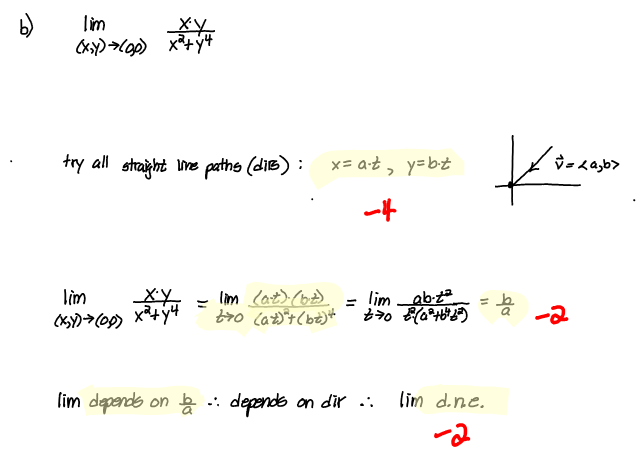 b) lim (x,y)→(0,0) x·y / x²+y⁴
try all straight line paths (dirs) : x = a·t , y = b·t
v⃗ = <a,b>
-4
lim (x,y)→(0,0) x·y / x²+y⁴ = lim t→0 (at)·(bt) / (at)²+(bt)⁴ = lim t→0 ab·t² / t²(a²+b⁴t²) = b/a -2
lim depends on b/a ∴ depends on dir ∴ lim d.n.e.
-2